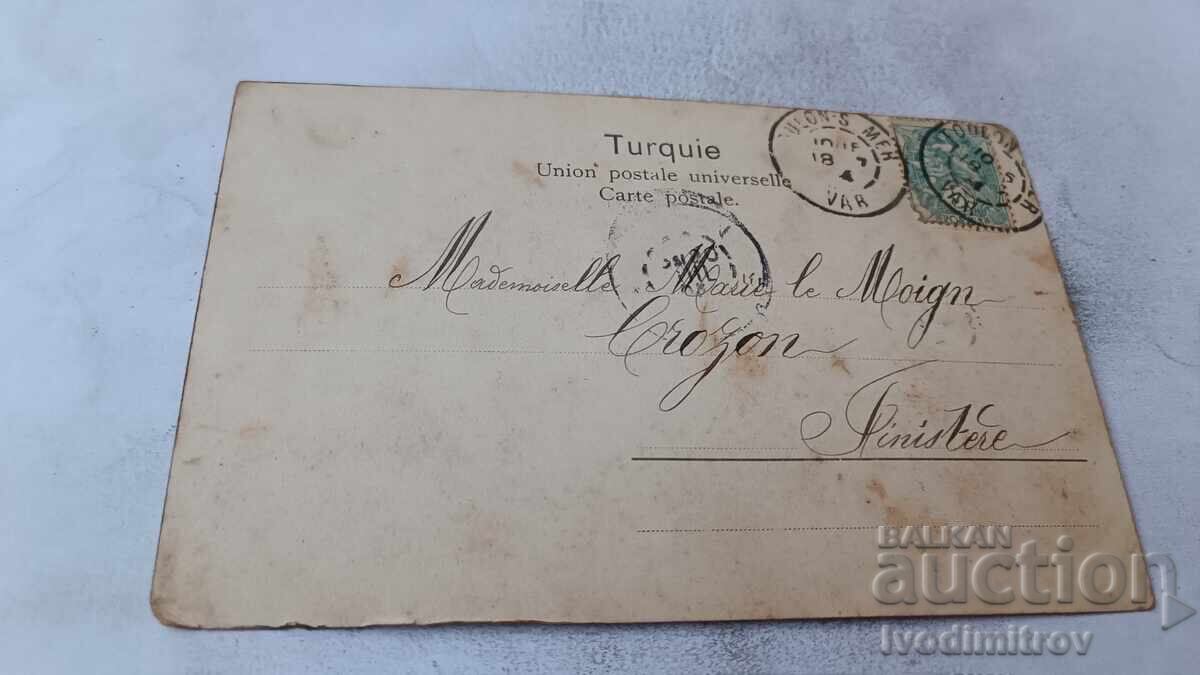 Turquie
Union postale universelle
Carte postale.
TOULON-S MER
18
VAR
TOULON
VAR
Mademoiselle Marie le Moign
Crozon
Finistère
BALKAN
auction
Ivodimitrov